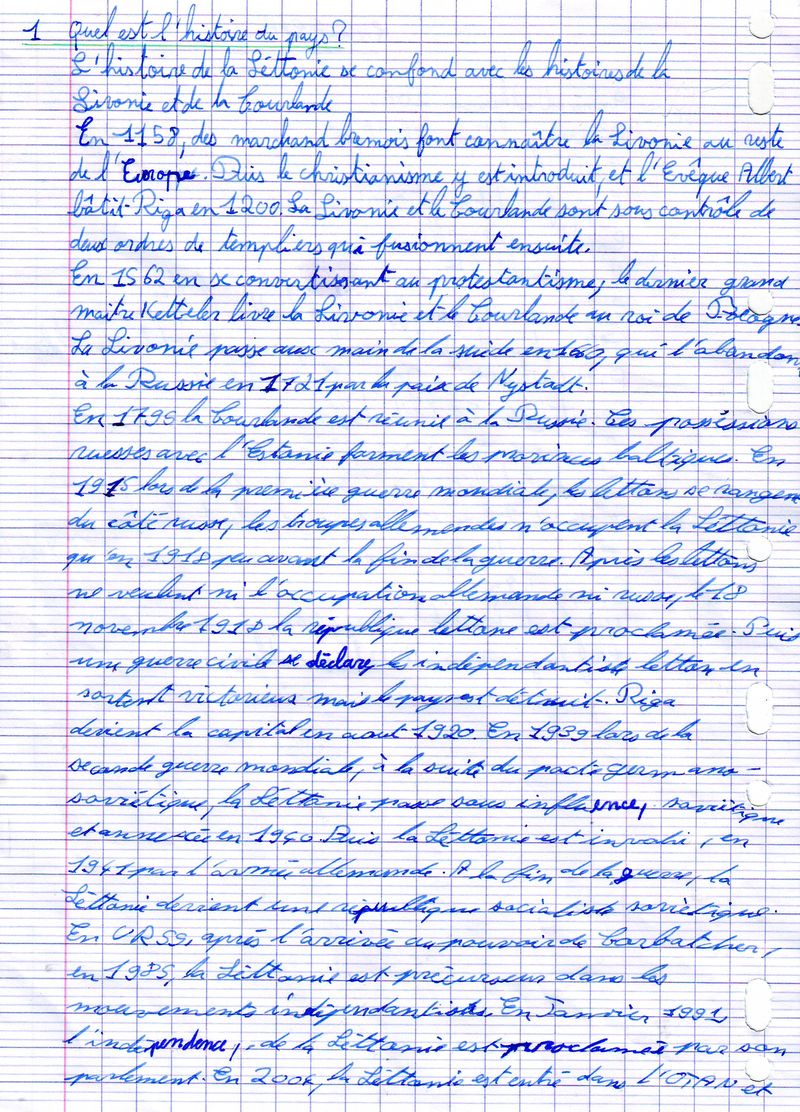 1 Quel est l'histoire du pays?
L'histoire de la Léttonie se confond avec les histoires de la
Livonie et de la Courlande
En 1158, des marchand bremois font connaître la Livonie au reste
de l'Europe. Puis le christianisme y est introduit, et l'Evêque Albert
bâtit Riga en 1200. La Livonie et le Courlande sont sous contrôle de
deux ordres de templiers qui fusionnent ensuite.
En 1562 en se convertissant au protestantisme, le dernier grand
maitre Ketteler livre la Livonie et le Courlande au roi de Pologne
La Livonie passe aux main de la suède en 1660, qui l'abandonn
à la Russie en 1721 par la paix de Nystadt.
En 1795 la Courlande est réunie à la Russie. Ces posséssions
russes avec l'Estonie forment les provinces baltiques. En
1915 lors de la première guerre mondiale, les lettons se rangent
du côté russe, les troupes allemendes n'occupent la Léttonie
qu'en 1918 peu avant la fin de la guerre. Après les lettons
ne veulent ni l'occupation allemande ni russe, le 18
novembre 1918 la république lettone est proclamée. Puis
une guerre civile se déclare, les indépendantiste letton en
sortent victorieux mais le pays est détruit. Riga
devient la capital en aout 1920. En 1939 lors de la
seconde guerre mondiale, à la suite du pacte germano-
soviétique, la Léttonie passe sous influence, soviétique
et annexée en 1940. Puis la Léttonie est invahi, en
1941 par l'armée allemande. A la fin de la guerre, la
Léttonie devient une république socialiste soviétique.
En URSS, après l'arrivée au pouvoir de Gorbatchev,
en 1985, la Léttonie est précurseur dans les
mouvements indépendantistes. En Janvier 1991
l'indépendence, de la Léttonie est proclamée par son
parlement. En 2004, la Léttonie est entré dans l'OTAN et